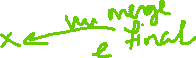 merge
x e final